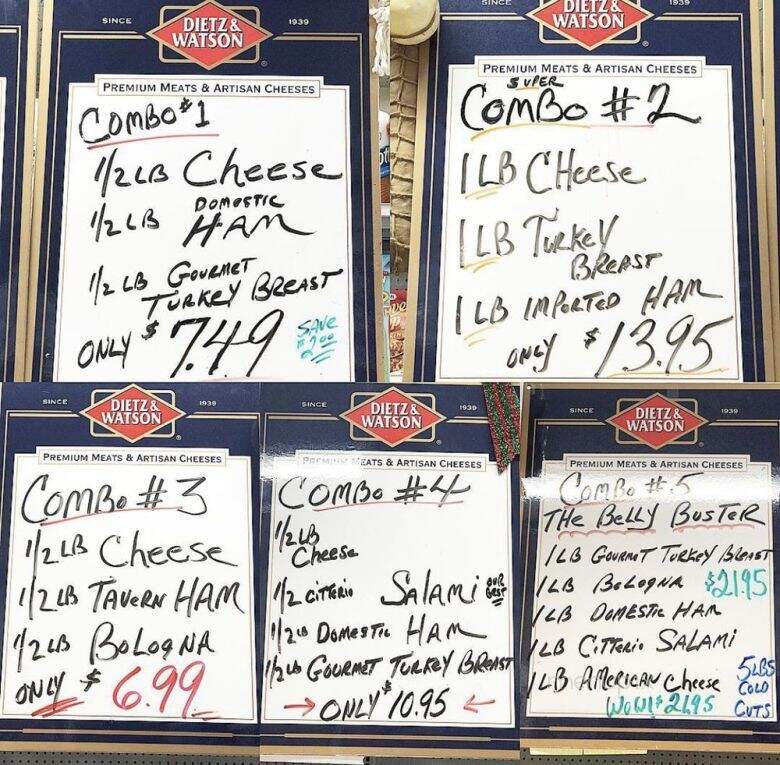 SINCE DIETZ & WATSON 1939
PREMIUM MEATS & ARTISAN CHEESES
COMBO #1
1/2 LB Cheese
1/2 LB DOMESTIC HAM
1/2 LB GOURMET
TURKEY BREAST
ONLY $7.49 SAVE
SINCE DIETZ & WATSON 1939
PREMIUM MEATS & ARTISAN CHEESES
SUPER
COMBO #2
1 LB CHeese
1 LB TURKEY
BREAST
1 LB IMPORTED HAM
ONLY $13.95
SINCE DIETZ & WATSON 1939
PREMIUM MEATS & ARTISAN CHEESES
COMBO #3
1/2 LB Cheese
1/2 LB TAVERN HAM
1/2 LB BOLOGNA
ONLY $6.99
SINCE DIETZ & WATSON 1939
PREMIUM MEATS & ARTISAN CHEESES
COMBO #4
1/2 LB
Cheese
1/2 CITTERIO SALAMI OUR BEST
1/2 LB DOMESTIC HAM
1/2 LB GOURMET TURKEY BREAST
→ ONLY $10.95 ←
SINCE DIETZ & WATSON 1939
PREMIUM MEATS & ARTISAN CHEESES
COMBO #5
THE BELLY BUSTER
1 LB GOURMET TURKEY BREAST
1 LB BOLOGNA $21.95
1 LB DOMESTIC HAM
1 LB CITTERIO SALAMI
1 LB AMERICAN Cheese 5 LBS
COLD
WOW! $21.95 CUTS